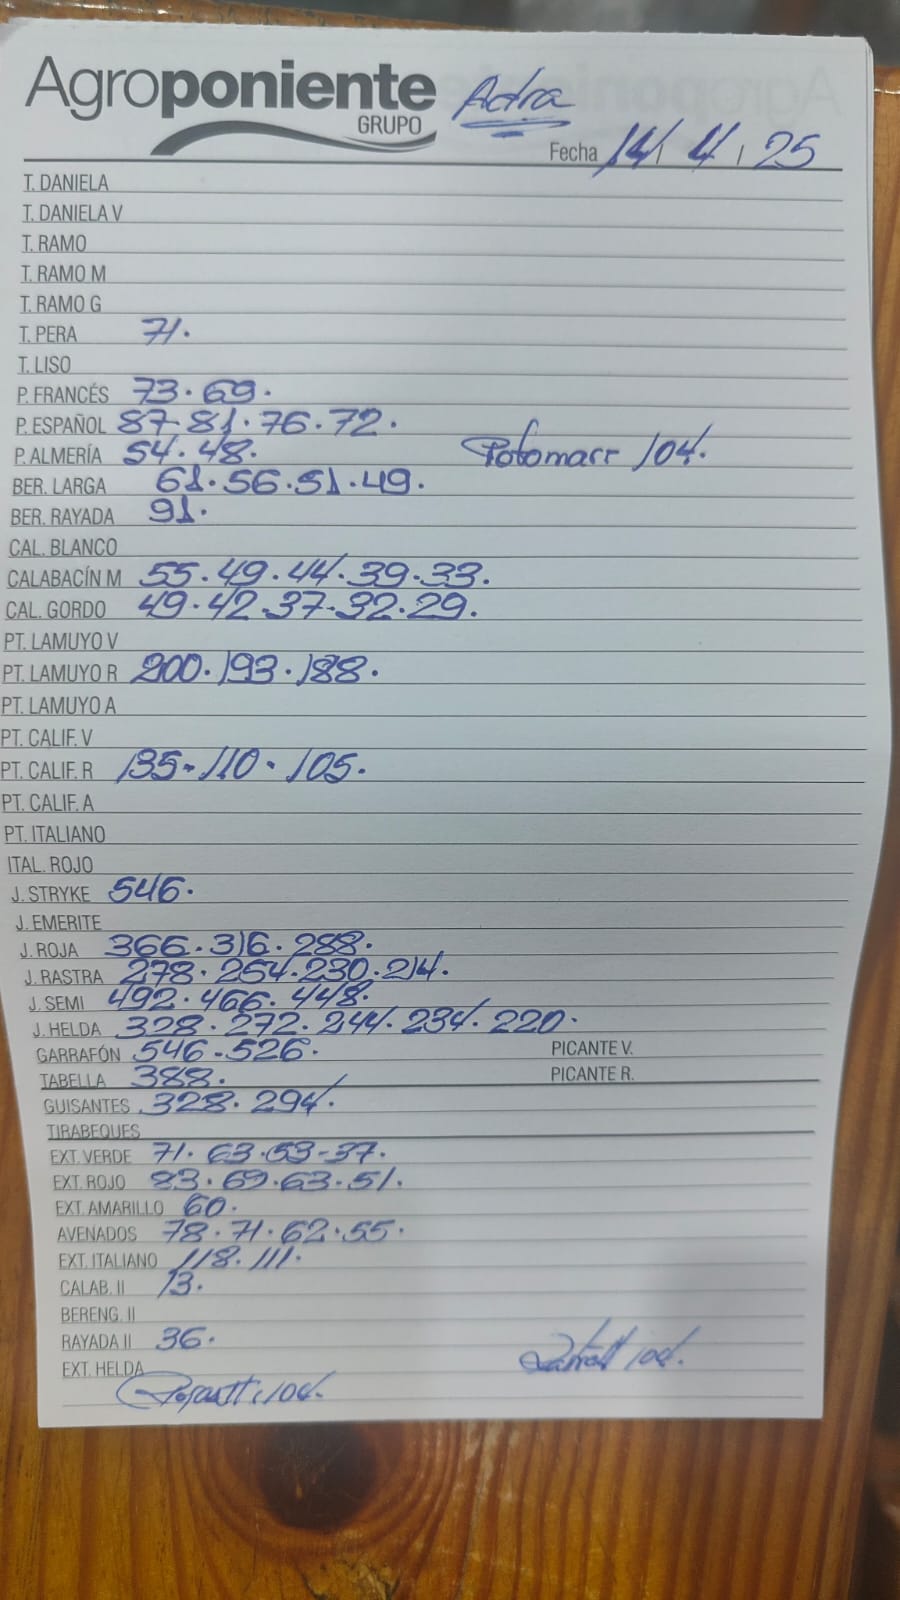 Agroponiente Adra
GRUPO
Fecha 14/ 4/ 25
T. DANIELA
T. DANIELA V
T. RAMO
T. RAMO M
T. RAMO G
T. PERA 71.
T. LISO
P. FRANCÉS 73. 69.
P. ESPAÑOL 87-81. 76. 72.
P. ALMERÍA 54. 48. 104.
BER. LARGA 61. 56. 51. 49.
BER. RAYADA 91.
CAL. BLANCO
CALABACÍN M 55. 49. 44. 39. 33.
CAL. GORDO 49. 42. 37. 32. 29.
PT. LAMUYO V
PT. LAMUYO R 200. 193. 188.
PT. LAMUYO A
PT. CALIF. V
PT. CALIF. R 135- 110- 105.
PT. CALIF. A
PT. ITALIANO
ITAL. ROJO
J. STRYKE 546.
J. EMERITE
J. ROJA 366. 316. 288.
J. RASTRA 278. 254. 230. 214.
J. SEMI 492. 466. 448.
J. HELDA 328. 272. 244. 234. 220.
GARRAFÓN 546-526. PICANTE V.
TABELLA 388. PICANTE R.
GUISANTES 328. 294.
TIRABEQUES
EXT. VERDE 71. 63. 53-37.
EXT. ROJO 83. 69. 63. 51.
EXT. AMARILLO 60.
AVENADOS 78. 71. 62. 55.
EXT. ITALIANO 118. 111.
CALAB. II 13.
BERENG. II
RAYADA II 36.
EXT. HELDA 104.
104.